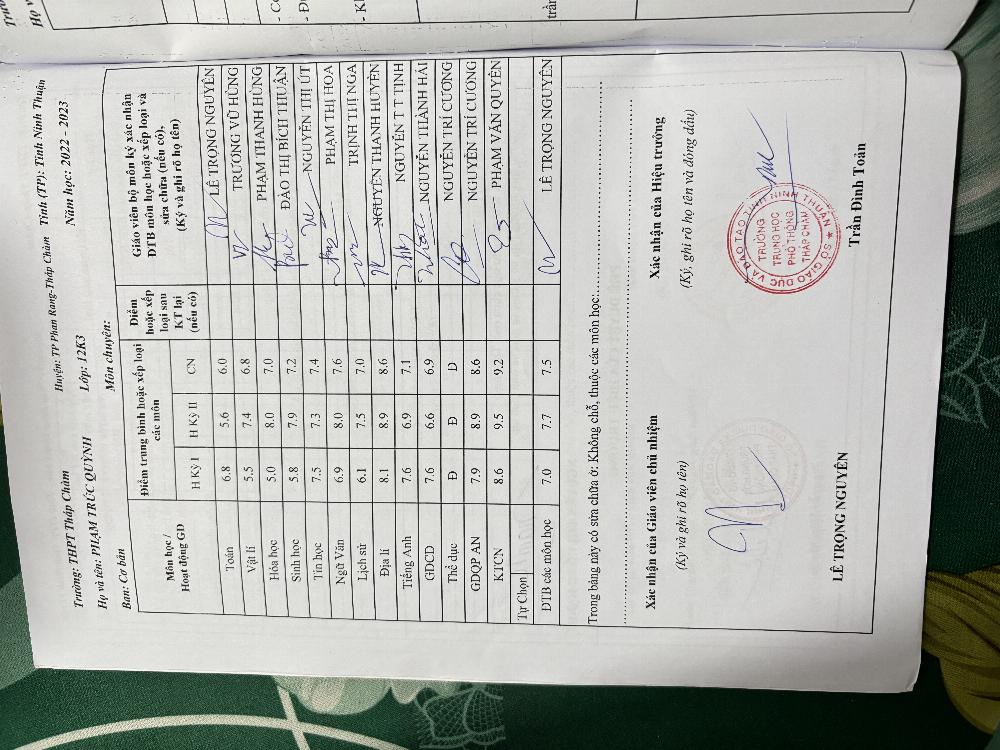 Trường: THPT Tháp Chàm Huyện: TP Phan Rang-Tháp Chàm Tỉnh (TP): Tỉnh Ninh Thuận
Họ và tên: PHẠM TRÚC QUỲNH Lớp: 12K3 Năm học: 2022 - 2023
Ban: Cơ bản Môn chuyên:
Môn học / Hoạt động GD Điểm trung bình hoặc xếp loại các môn Điểm hoặc xếp loại sau KT lại (nếu có) Giáo viên bộ môn ký xác nhận ĐTB môn học hoặc xếp loại và sửa chữa (nếu có), (Ký và ghi rõ họ tên)
H Kỳ I H Kỳ II CN
Toán 6.8 5.6 6.0 LÊ TRỌNG NGUYÊN
Vật lí 5.5 7.4 6.8 TRƯƠNG VŨ HÙNG
Hóa học 5.0 8.0 7.0 PHẠM THANH HÙNG
Sinh học 5.8 7.9 7.2 ĐÀO THỊ BÍCH THUẬN
Tin học 7.5 7.3 7.4 NGUYỄN THỊ ÚT
Ngữ Văn 6.9 8.0 7.6 PHẠM THỊ HOA
Lịch sử 6.1 7.5 7.0 TRỊNH THỊ NGA
Địa lí 8.1 8.9 8.6 NGUYỄN THANH HUYỀN
Tiếng Anh 7.6 6.9 7.1 NGUYỄN T T TỊNH
GDCD 7.6 6.6 6.9 NGUYỄN THÀNH HẢI
Thể dục Đ Đ Đ NGUYỄN TRÍ CƯƠNG
GDQP AN 7.9 8.9 8.6 NGUYỄN TRÍ CƯƠNG
KTCN 8.6 9.5 9.2 PHẠM VĂN QUYÊN
Tự Chọn
ĐTB các môn học 7.0 7.7 7.5 LÊ TRỌNG NGUYÊN
Trong bảng này có sửa chữa ở: Không chỗ, thuộc các môn học:
Xác nhận của Giáo viên chủ nhiệm Xác nhận của Hiệu trưởng
(Ký và ghi rõ họ tên) (Ký, ghi rõ họ tên và đóng dấu)
SỞ GIÁO DỤC VÀ ĐÀO TẠO TỈNH NINH THUẬN
TRƯỜNG
TRUNG HỌC
PHỔ THÔNG
THÁP CHÀM
LÊ TRỌNG NGUYÊN Trần Đình Toàn